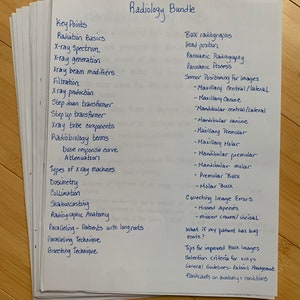 Radiology Bundle
Key Points
Radiation Basics
X-ray spectrum
X-ray generation
X-ray beam modifiers
Filtration
X-ray production
Step down transformer
Step up transformer
X-ray tube components
Radiobiology terms
Dose response curve
Attenuation
Types of X-ray machines
Dosimetry
Collimation
Shadowcasting
Radiographic Anatomy
Paralleling - Patients with long roots
Paralleling Technique
Bisecting Technique
Bulk radiographs
Head position
Panoramic Radiography
Panoramic Process
Sensor Positioning for Images
- Maxillary central/lateral
- Maxillary Canine
- Mandibular central/lateral
- Mandibular canine
- Maxillary Premolar
- Maxillary Molar
- Mandibular premolar
- Mandibular molar
- Premolar BWX
- Molar BWX
Correcting Image Errors
- missed apencies
- missed crowns/incisal
What if my patient has bug
Tips for improved BWX Images
Selection criteria for x-rays
General Guidelines - Patient Management
Flashcards on anatomy + conditions